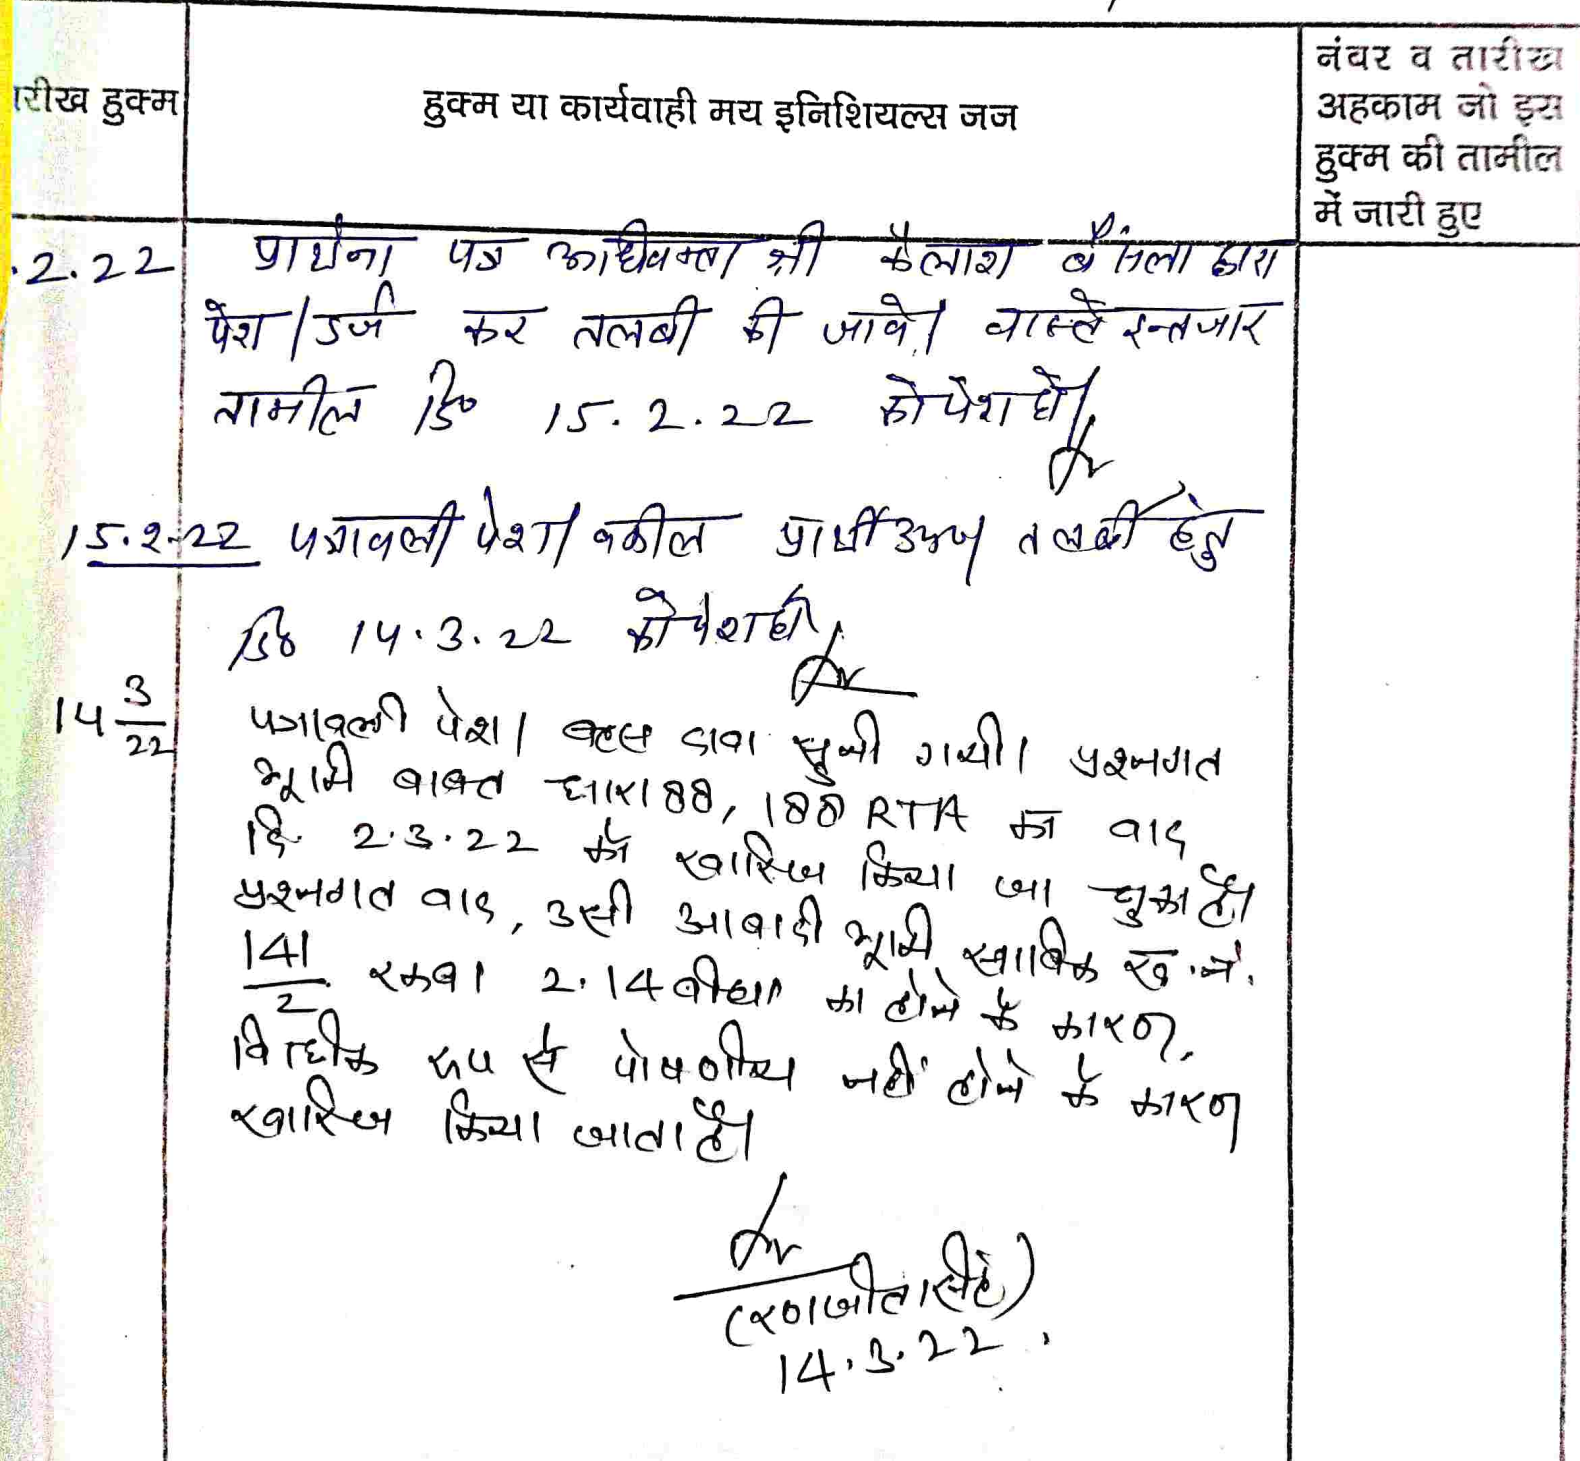 रीख हुक्म
हुक्म या कार्यवाही मय इनिशियल्स जज
नंबर व तारीख
अहकाम जो इस
हुक्म की तामील
में जारी हुए
.2.22 प्रार्थना पत्र अधिवक्ता श्री कैलाश बैंसला द्वारा
पेश/दर्ज कर तलबी की जावे। वास्ते इन्तजार
तामील दि० 15.2.22 को पेश हो।
15.2.22 पत्रावली पेश। वकील प्रार्थी उप॰। तलबी हेतु
दि० 14.3.22 को पेश हो।
14 3/22 पत्रावली पेश। बहस दावा सुनी गयी। प्रश्नगत
भूमि बाबत धारा 88, 188 RTA का वाद
दि. 2.3.22 को खारिज किया जा चुका है।
प्रश्नगत वाद, उसी आबादी भूमि साबिक ख.नं.
141/2 रकबा 2.14 बीघा का होने के कारण,
विधिक रूप से पोषणीय नहीं होने के कारण
खारिज किया जाता है।
(रणजीत सिंह)
14.3.22.